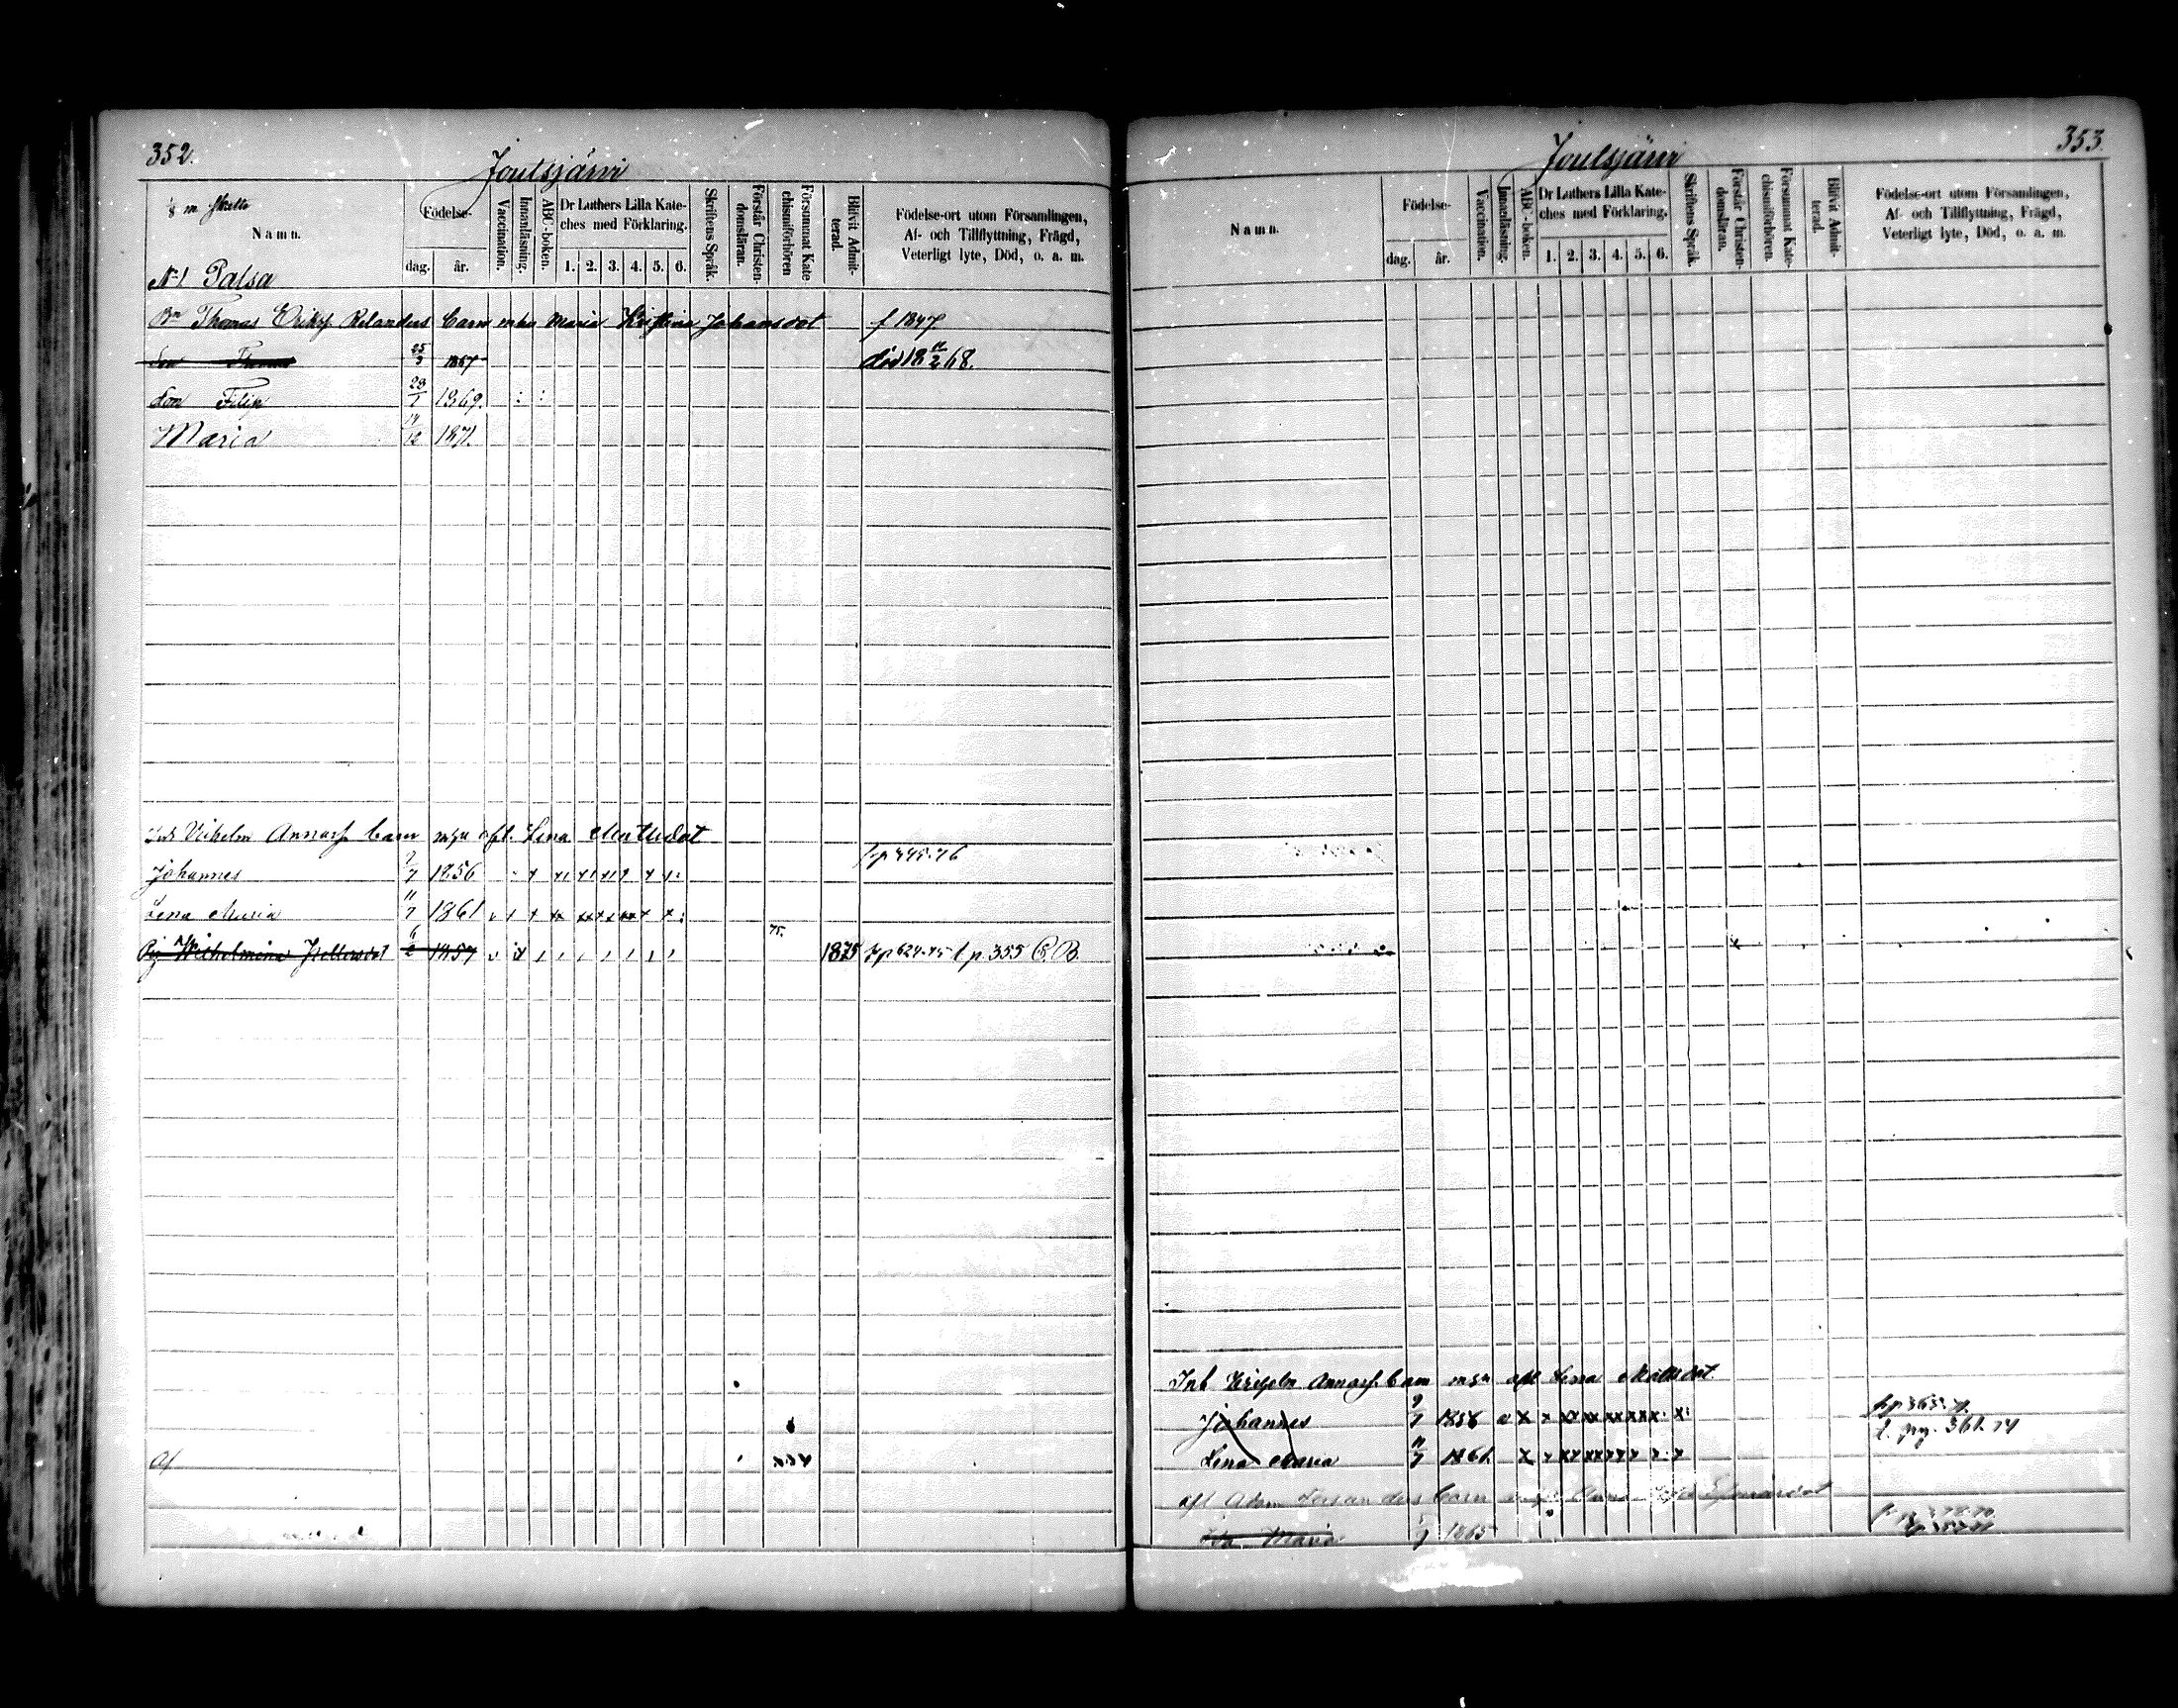 352.
Joutsjärvi
1/8 m Skatte
Namn.
Födelse-
dag. år.
Vaccination.
Innanläsning.
ABC-boken.
Dr Luthers Lilla Kate-
ches med Förklaring.
1. 2. 3. 4. 5. 6.
Skriftens Språk.
Förstår Christen-
domsläran.
Försummat Kate
chismiförhören
Blifvit Admit-
terad.
Födelse-ort utom Församlingen,
Af- och Tillflyttning, Frägd,
Veterligt lyte, Död, o. a. m.
No 1 Palsa
Bn Thomas Eriksf. Relanders barn m hu Maria Kristina Johansdot f 1847
Son Thomas 25/3 1867 död 18 11/2 68.
Son Filip 29/1 1869.
Maria 14/12 1871.
Inh Vilhelm Annasf. barn m s n afl. Lena Mattsdot
Johannes 9/7 1856 fr p 345. 76
Lena Maria 11/7 1861
75.
Pig Wilhelmina Kellersdot 6/2 1857 1875 fr p 624. 75 t p. 355 C. B.
Af
353.
Joutsjärvi
Namn.
Födelse-
dag. år.
Vaccination.
Innanläsning.
ABC-boken.
Dr Luthers Lilla Kate-
ches med Förklaring.
1. 2. 3. 4. 5. 6.
Skriftens Språk.
Förstår Christen-
domsläran.
Försummat Kate-
chismiförhören.
Blifvit Admit-
terad.
Födelse-ort utom Församlingen,
Af- och Tillflyttning, Frägd,
Veterligt lyte, Död, o. a. m.
Inh Wilhelm Annasf. barn m s n afl Lena Mattsdot
Johannes 9/7 1856 fr p 363.
t. pag. 361. 74
Lena Maria 11/7 1861
afl Adam barn Anna
Ida Maria 1865